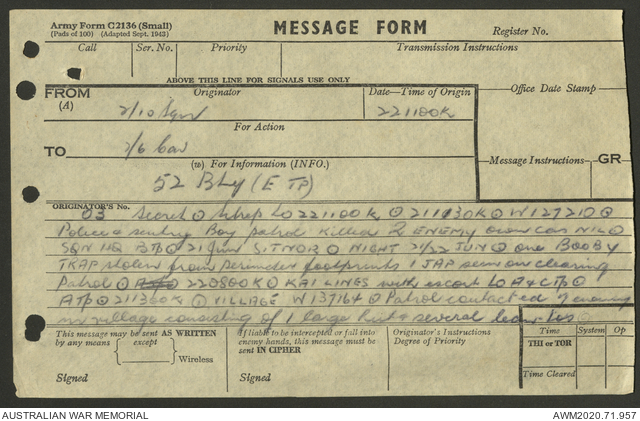 Army Form C2136 (Small)
(Pads of 100) (Adapted Sept. 1943)
MESSAGE FORM
Register No.
Call
Ser. No.
Priority
Transmission Instructions
ABOVE THIS LINE FOR SIGNALS USE ONLY
FROM
(A)
Originator
Date—Time of Origin
Office Date Stamp
2/10 Sqn
221100K
For Action
TO
2/6 Cav
(w) For Information (INFO.)
Message Instructions
GR
52 Bty (E TP)
ORIGINATOR'S No.
03 Secret O Sitrep to 221100K O 211130K O W127210 O
Police & sentry Boy patrol killed 2 ENEMY own cas NIL O
SQN HQ BTP O 21 Jun SITNOR O NIGHT 21/22 JUN O one BOOBY
TRAP stolen from perimeter footprints 1 JAP seen on clearing
Patrol O 220800K O KAI LINES with escort to A & C TP O
A TP O 211300K O VILLAGE W137164 O Patrol contacted enemy
in village consisting of 1 large hut & several O
This message may be sent AS WRITTEN
by any means except
Wireless
Signed
If liable to be intercepted or fall into
enemy hands, this message must be
sent IN CIPHER
Signed
Originator's Instructions
Degree of Priority
Time
System
Op
THI or TOR
Time Cleared
AUSTRALIAN WAR MEMORIAL
AWM2020.71.957